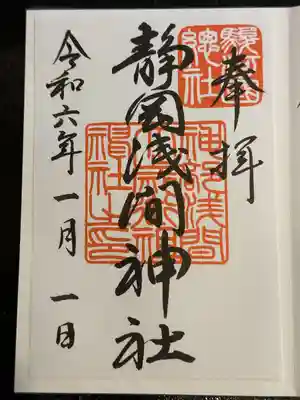 奉拝
駿河総社
静岡浅間神社
令和六年一月一日